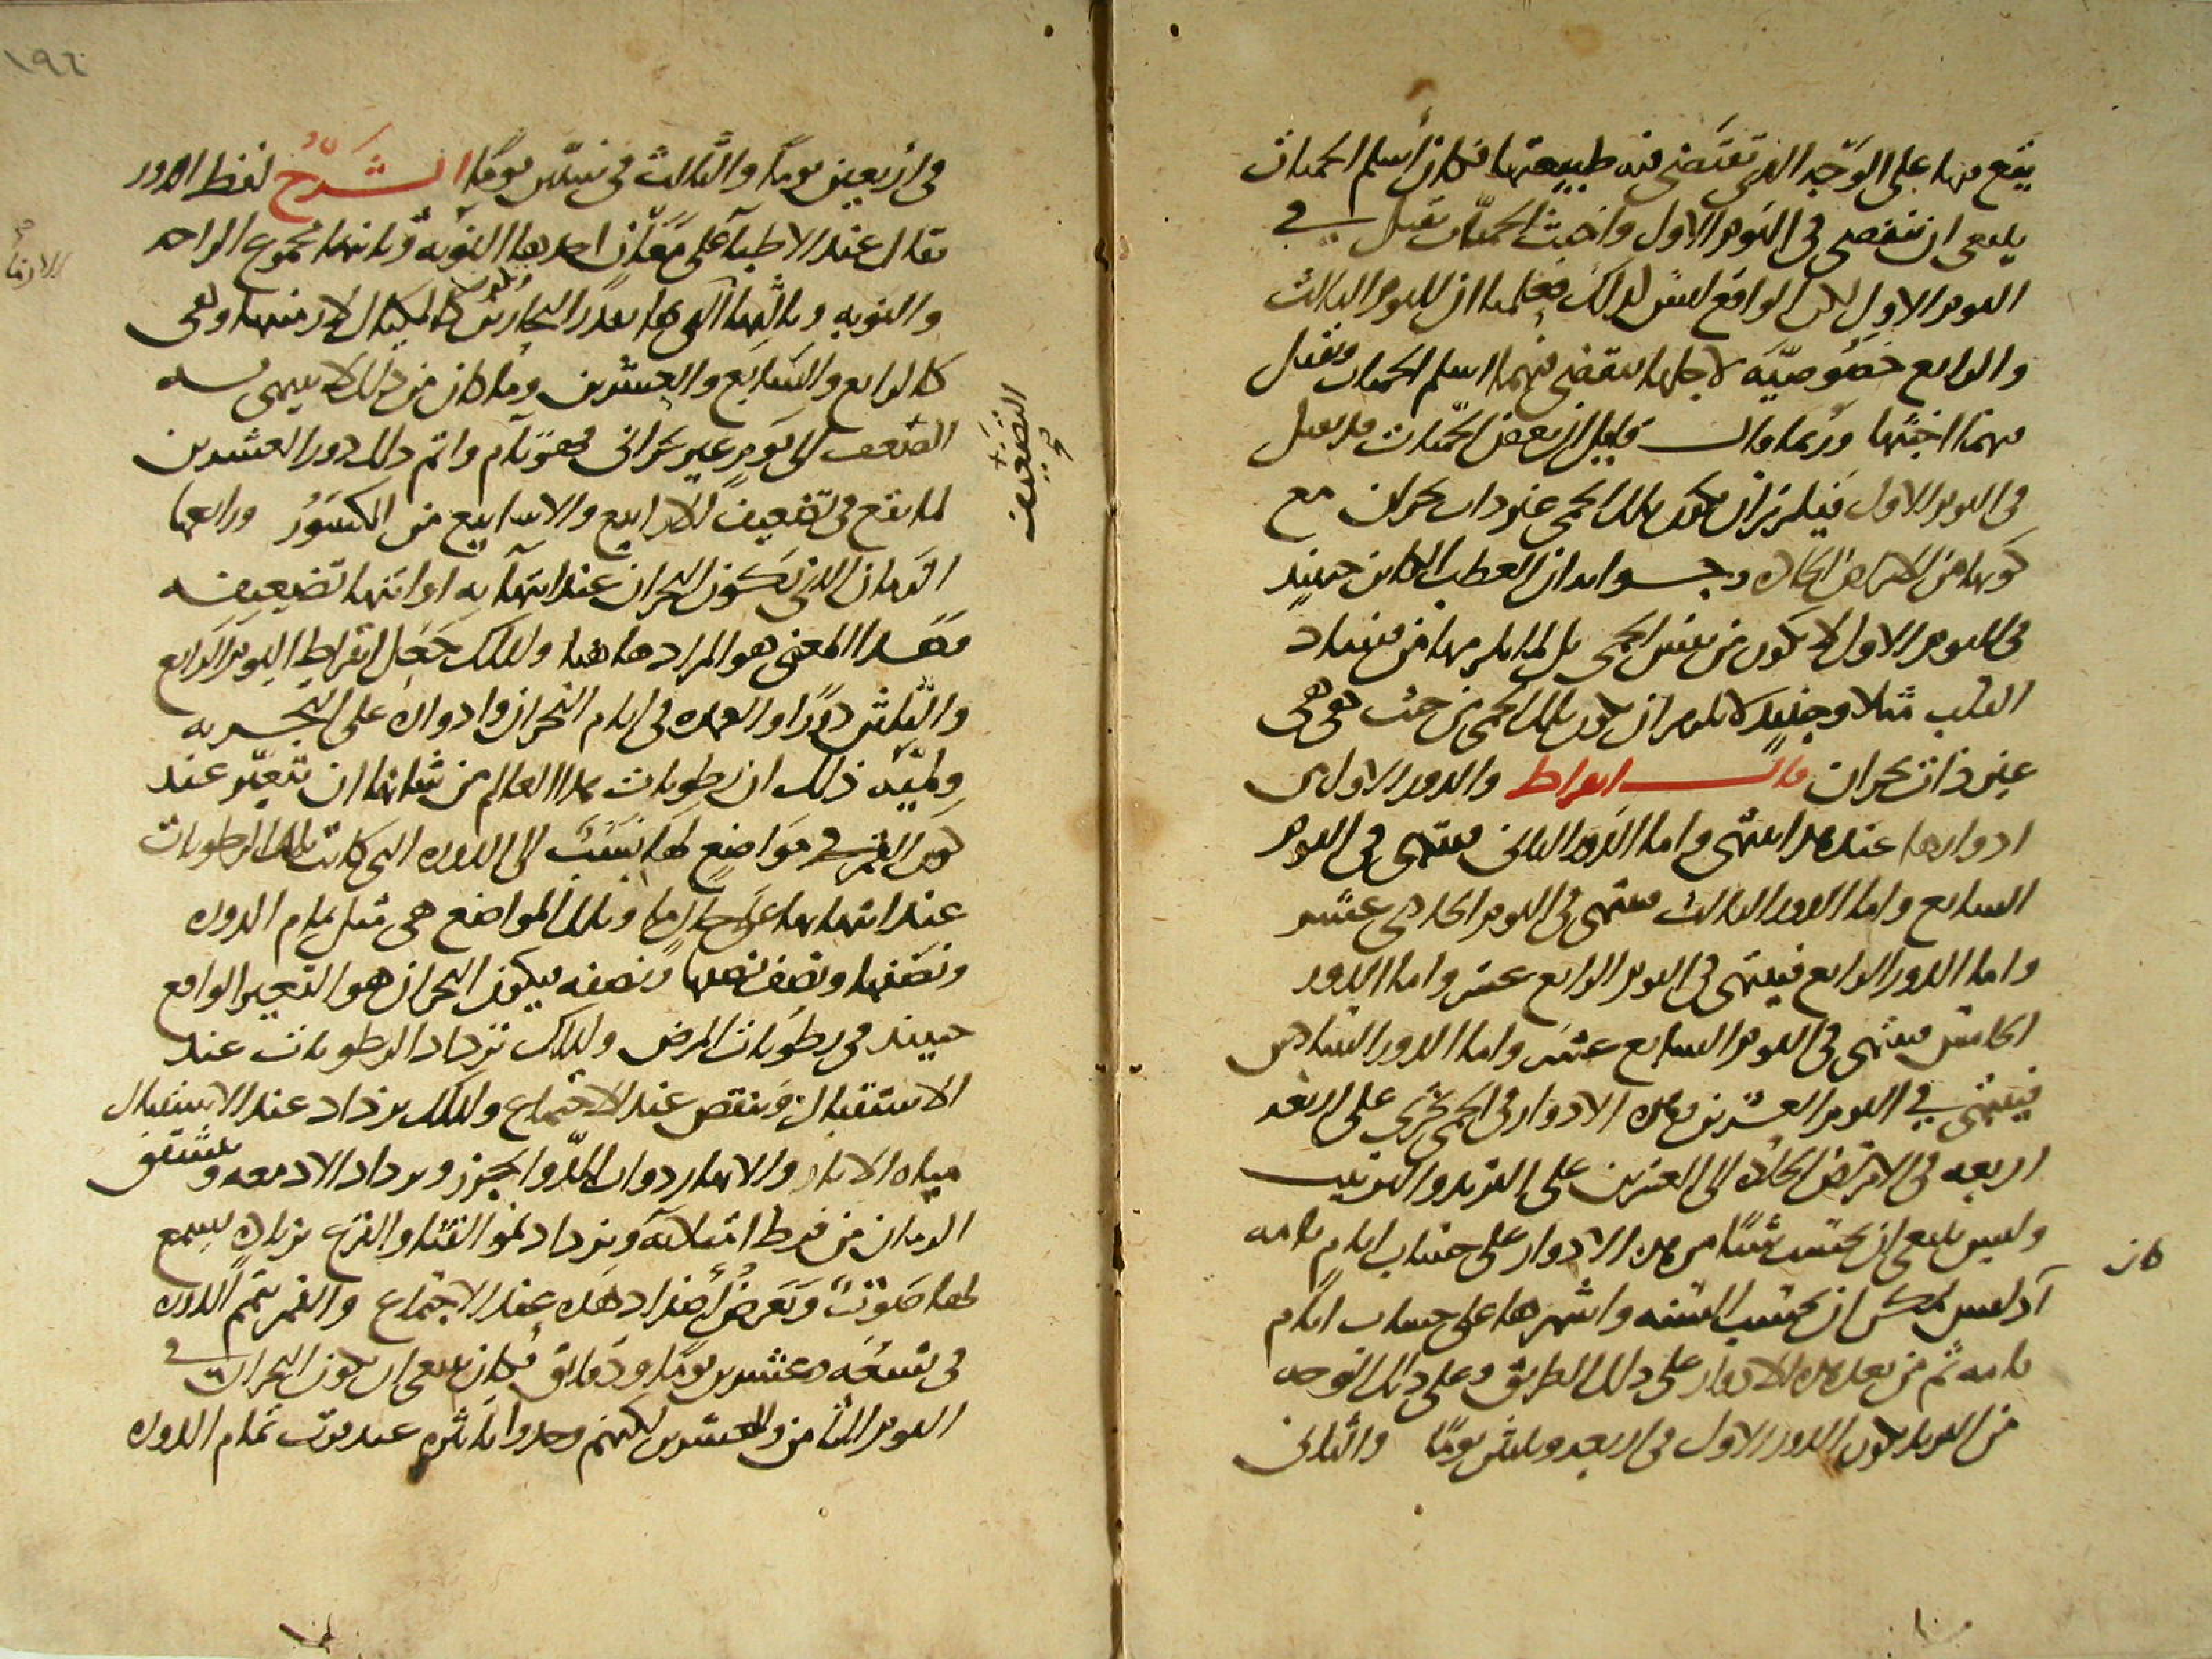 يقع منها على الوجه الذي تقتضي فيه طبيعتها فكان أسلم الحميات
ينبغي ان تنقضي في اليوم الاول واخبث الحميات تقتل في
اليوم الاول لكن الواقع ليس كذلك فعلمنا ان لليوم الثالث
والرابع خصوصية لاجلها تنقضي فيهما اسلم الحميات وتقتل
فيهما اخبثها وربما قال قايل ان بعض الحميات قد تقتل
في اليوم الاول فيلزم ان تكون تلك الحمى غير ذات بحران مع
كونها من الامراض الحادة وجوابه ان العطب الكاين حينيذ
في اليوم الاول لا تكون من نفس الحمى بل لما يلزمها من فساد
القلب مثلا وحينيذ لا يلزم ان تكون تلك الحمى من حيث هي حمى
غير ذات بحران قال ابقراط والدور الاول من
ادوارها عند هذا ينتهي واما الدور الثاني فينتهي في اليوم
السابع واما الدور الثالث فينتهي في اليوم الحادي عشر
واما الدور الرابع فينتهي في اليوم الرابع عشر واما الدور
الخامس فينتهي في اليوم السابع عشر واما الدور السادس
فينتهي في اليوم العشرين فهذه الادوار في الحمى تجري على اربعة
اربعة في الامراض الحادة الى العشرين على التزيد والترتيب
وليس ينبغي ان تحتسب شيئا من هذه الادوار على حساب ايام تامة
كان
اذ ليس يمكن ان تحتسب السنة واشهرها على حساب ايام
تامة ثم من بعد هذه الادوار على ذلك الطريق وعلى ذلك التوجه
من التزيد يكون الدور الاول في اربعة وثلثين يوما والثاني
١٩٦
في اربعين يوما والثالث في ستين يوما الشرح لفظ الدور
يقال عند الاطباء على معان احدها النوبة وثانيها مجموع الراحة
والنوبة وثالثها التي بها يقدر البحارين كالمكيال لازمنتها وهي
كالرابع والسابع والعشرين وما كان من ذلك لا ينتهي به
الضعف الى يوم غير بحراني فهو تام واتم ذلك دور العشرين
التضعيف
لما يقع في تضعيف الارابيع والاسابيع من الكسور ورابعها
الزمان الذي يكون البحران عند انتهايه او انتها تضعيفه
وهذا المعنى هو المراد هاهنا ولذلك جعل ابقراط اليوم الرابع
والثلثين دورا والعمدة في ايام البحران وادواره على التجربة
ولمية ذلك ان رطوبات هذا العالم من شانها ان تتغير عند
كون القمر في مواضع لها نسب الى الدورة التي كانت تلك الرطوبات
عند ابتدايها على حال ما وتلك المواضع هي مثل تمام الدورة
ونصفها ونصف نصفها ونصفه فيكون البحران هو التغير الواقع
حينيذ في رطوبات المرض ولذلك تزداد الرطوبات عند
الاستقبال وتنقص عند الاجتماع ولذلك يزداد عند الاستقبال
مياه الابار والانهار ذوات المد والجزر ويزداد الادمغة وتنشق
الرمان من فرط امتلايه ويزداد نمو القثا والقرع زيادة يسمع
لها صوت وتعرض اضداد هذه عند الاجتماع والقمر يتم الدورة
في تسعة وعشرين يوما ودقايق فكان ينبغي ان يكون البحران في
اليوم الثامن والعشرين لكنهم وجدوا تاثيره عند قرب تمام الدورة